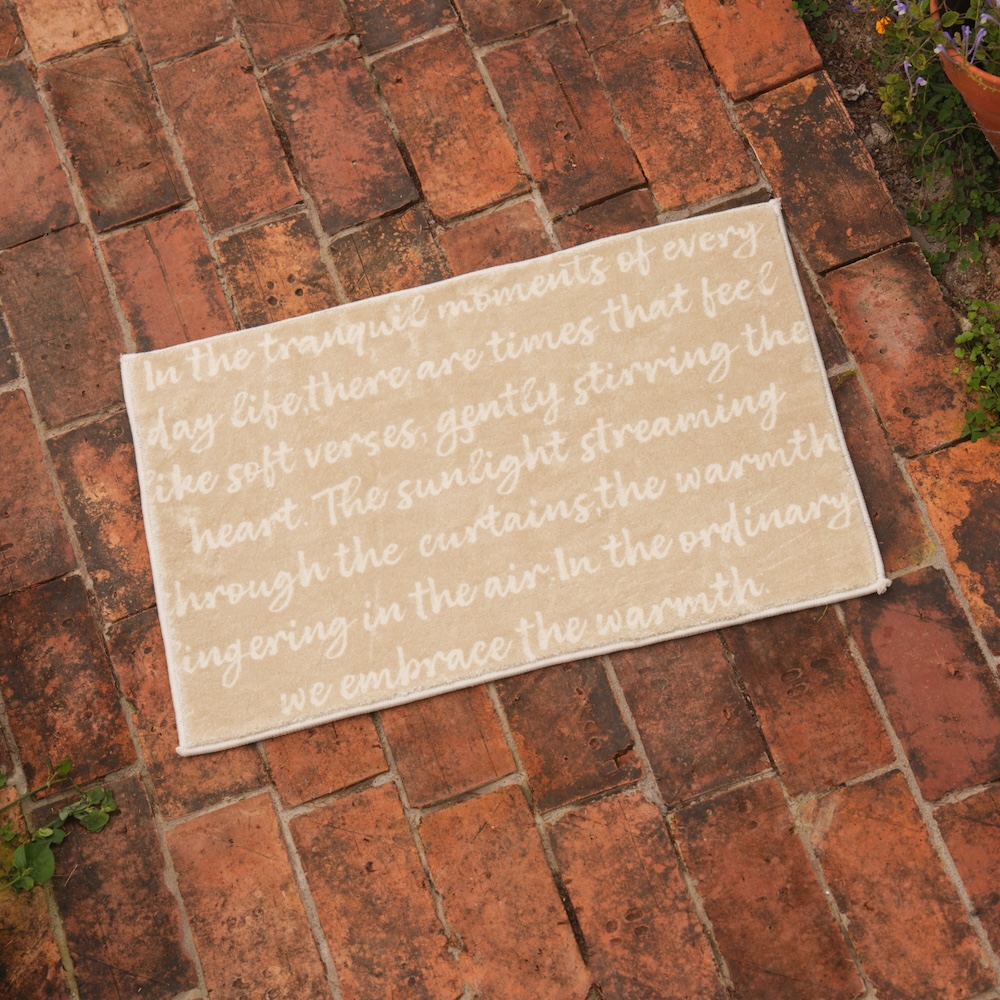 In the tranquil moments of every
day life,there are times that feel
like soft verses, gently stirring the
heart. The sunlight streaming
through the curtains,the warmth
lingering in the air.In the ordinary
we embrace the warmth.